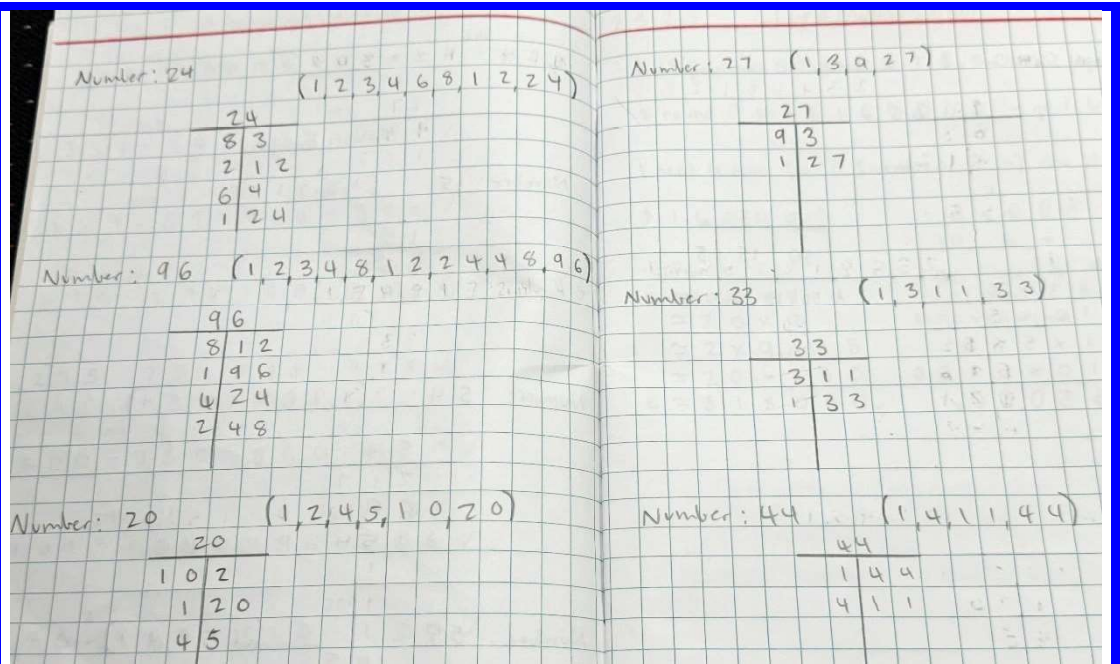 Number: 24
(1,2,3,4,6,8,12,24)
24
8 3
2 12
6 4
1 24
Number: 96 (1,2,3,4,8,12,24,48,96)
96
8 12
1 96
4 24
2 48
Number: 20 (1,2,4,5,10,20)
20
10 2
1 20
4 5
Number: 27 (1,3,9,27)
27
9 3
1 27
Number: 33 (1,3,11,33)
33
3 11
1 33
Number: 44 (1,4,11,44)
44
1 44
4 11